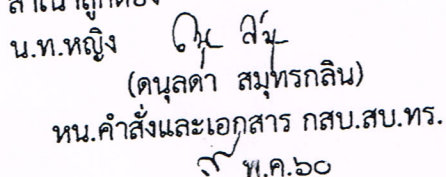 สำเนาถูกต้อง
น.ท.หญิง
(ดนุลดา สมุทรกลิน)
หน.คำสั่งและเอกสาร กสบ.สบ.ทร.
พ.ค.๖๐